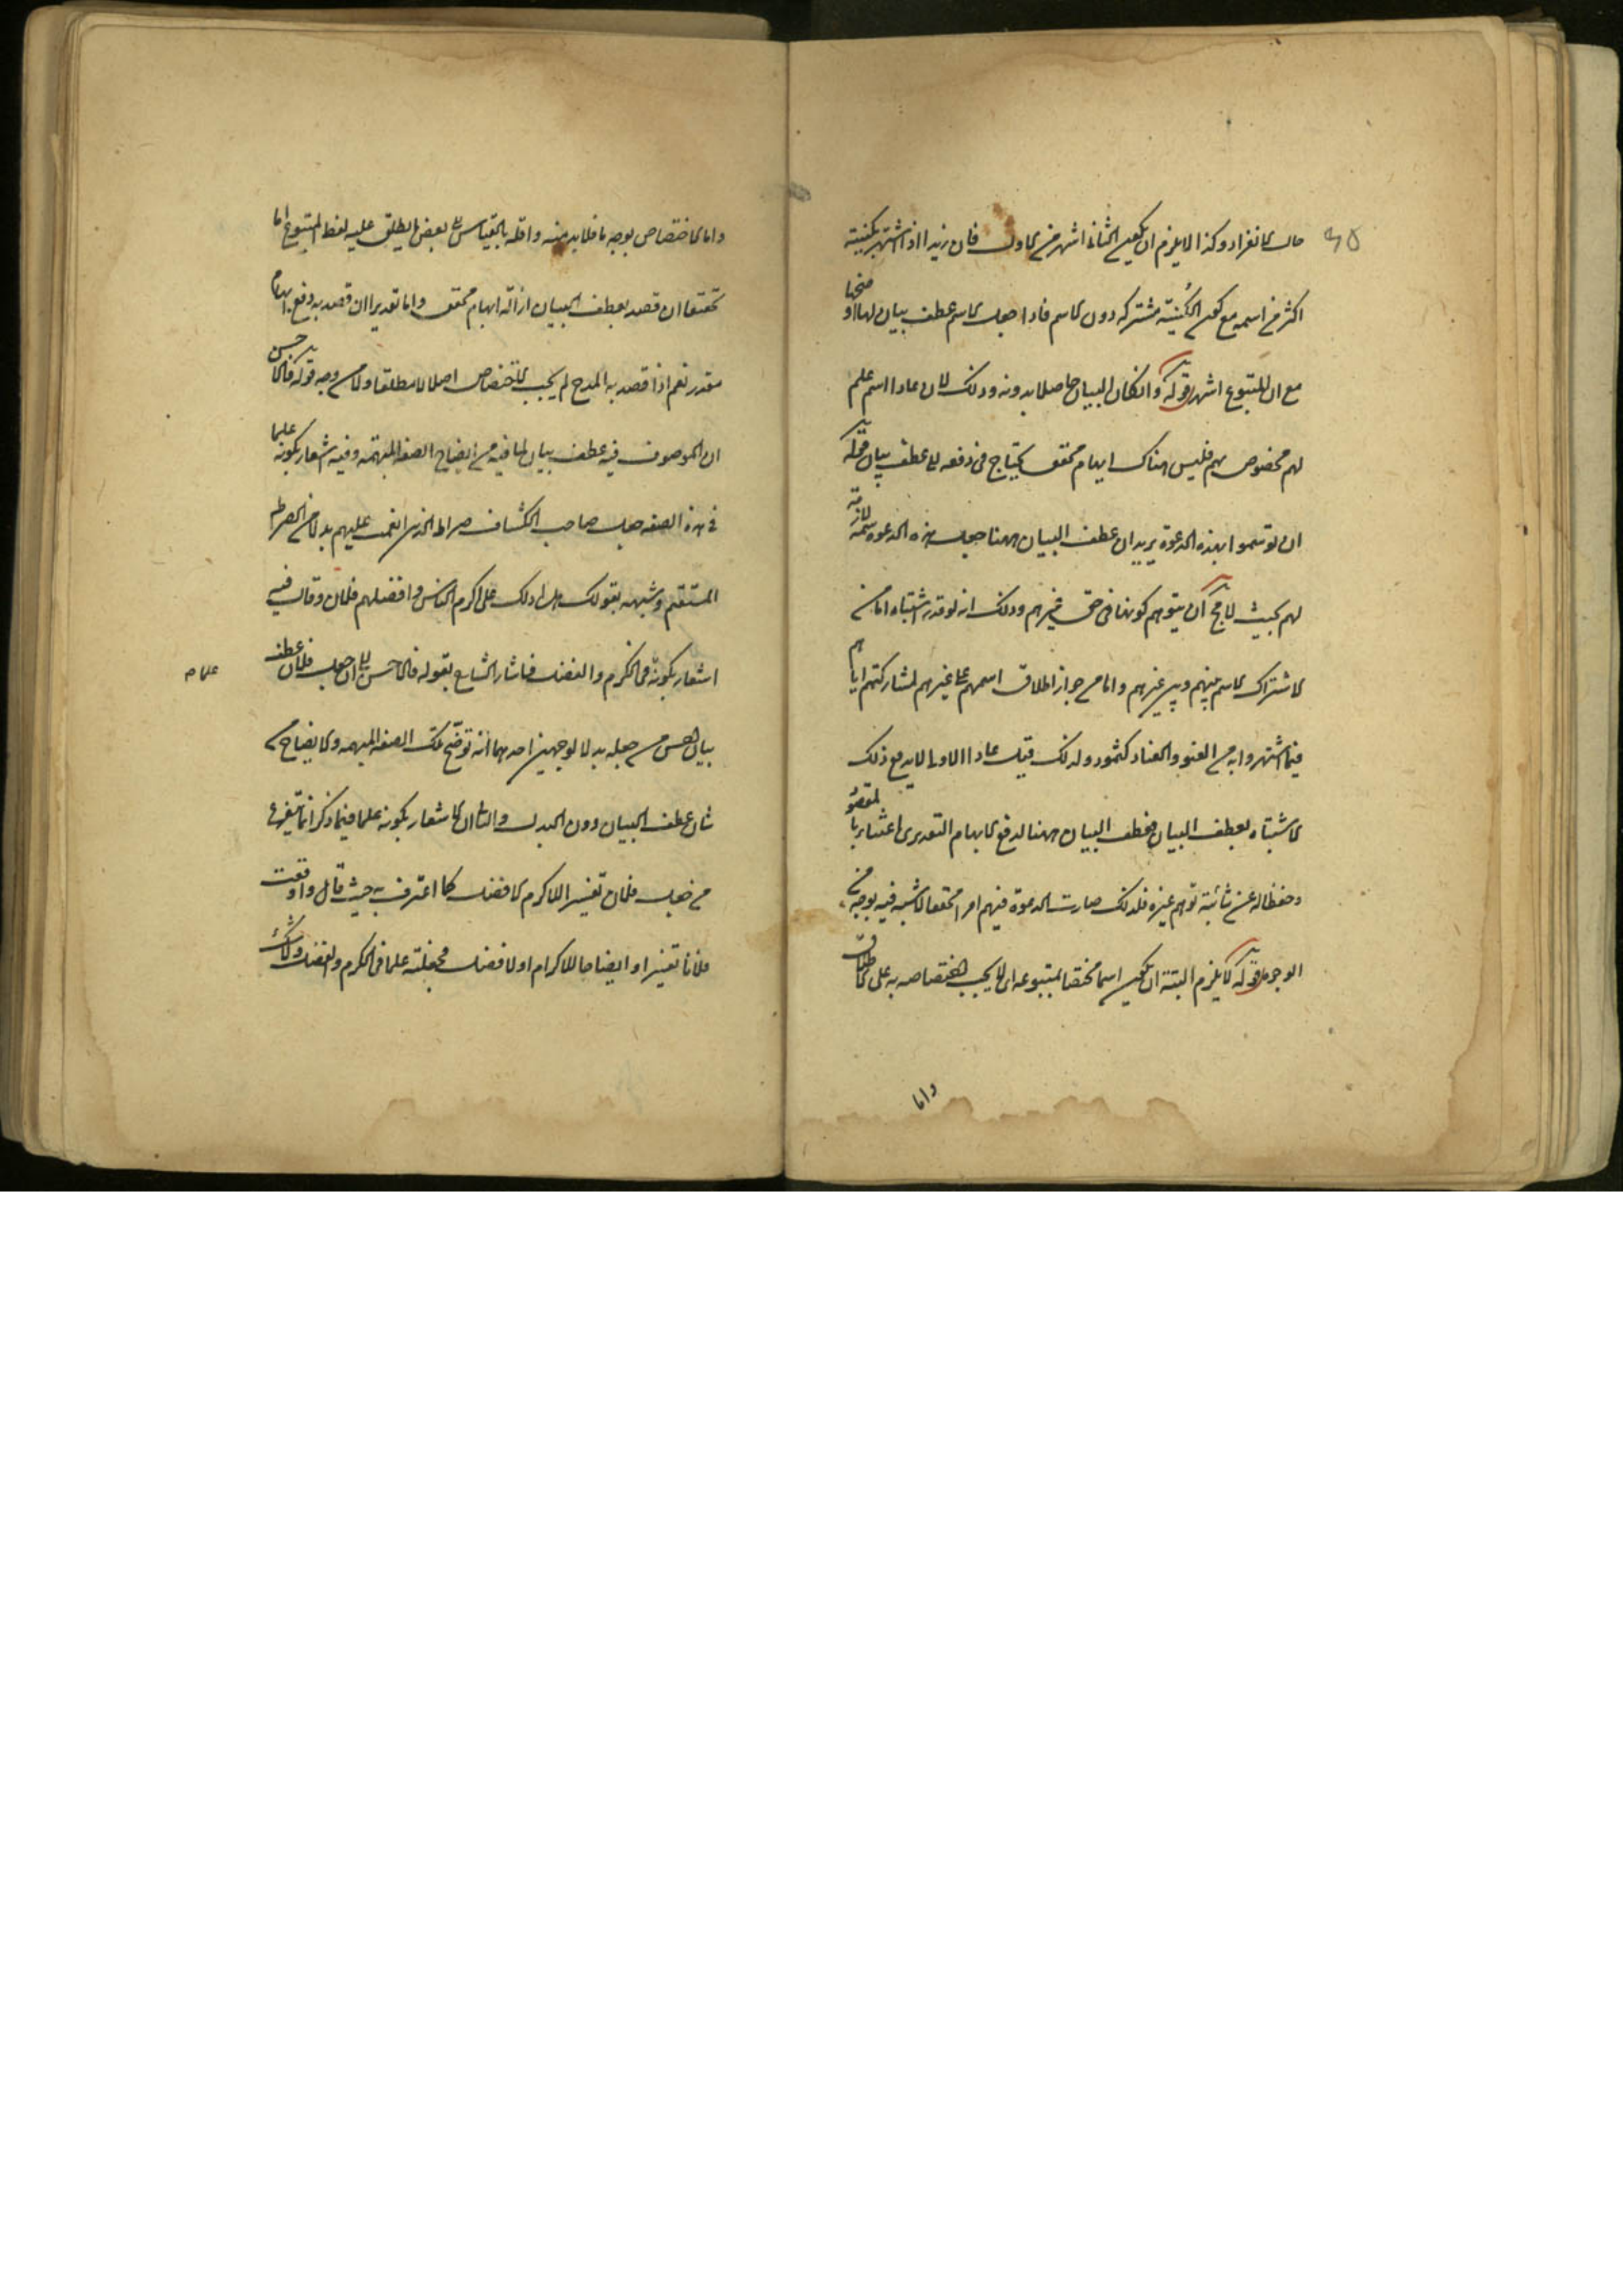 حال الانفراد وكذا لا يلزم ان يكون الثانى اشهر من الاول فان زيدا اذا اشتهر بكنيته
اكثر من اسمه مع كون الكنية مشتركة دون الاسم فاذا جعل الاسم عطف بيان لها اوضحها
مع ان المتبوع اشهر قوله وان كان البيان حاصلا بدونه وذلك لان عادا اسم علم
لهم مخصوص بهم فليس هناك ابهام محقق يحتاج فى دفعه الى عطف بيان قوله
ان يوسموا بهذه الدعوة يريد ان عطف البيان ههنا جعل هذه الدعوة سمة لازمة
لهم بحيث لا مجال ان يتوهم كونها فى حق غيرهم وذلك انه لو قدر اشتباه اما من
الاشتراك الاسم بينهم وبين غيرهم واما من جواز اطلاق اسمهم على غيرهم لمشاركتهم اياهم
فيما اشتهروا به من العتو والعناد كثمود ولذلك قيل عادا الاولى لاندفع ذلك
الاشتباه بعطف البيان فعطف البيان ههنا لدفع الابهام التقديرى اعتناء بالمقصود
وحفظا له عن شائبة توهم غيره فلذلك صارت الدعوة فيهم امرا محققا لا شبهة فيه بوجه من
الوجوه قوله لا يلزم البتة ان يكون اسما مختصا بمتبوعه اى لا يجب اختصاصه به على الاطلاق
واما
واما الاختصاص بوجه ما فلا بد منه واقله بالقياس الى بعض ما يطلق عليه لفظ المتبوع اما
تحقيقا ان قصد بعطف البيان ازالة ابهام محقق واما تقديرا ان قصد به دفع ابهام
مقدر نعم اذا قصد به المدح لم يجب الاختصاص اصلا لا مطلقا ولا من وجه قوله فالاحسن
ان الموصوف فيه عطف بيان لما فيه من ايضاح الصفة المبهمة وفيه اشعار بكونه علما
فى هذه الصفة جعل صاحب الكشاف صراط الذين انعمت عليهم بدلا من الصراط
المستقيم وشبهه بقولك هل ادلك على اكرم الناس وافضلهم فلان وقال فيه
اشعار بكونه فى الكرم والفضل فاشار الشارح بقوله فالاحسن الى ان جعل فلان عطف
علما ص
بيان احسن من جعله بدلا لوجهين احدهما انه توضح تلك الصفة المبهمة والايضاح من
شان عطف البيان دون البدل والثانى ان الاشعار بكونه علما فيما ذكر انما يتفرع
من جعل فلان تفسيرا للاكرم الافضل كما اعترف به حيث قال واوقعت
فلانا تفسيرا وايضاحا للاكرم الافضل فجعلته علما فى الكرم والفضل ولا شك